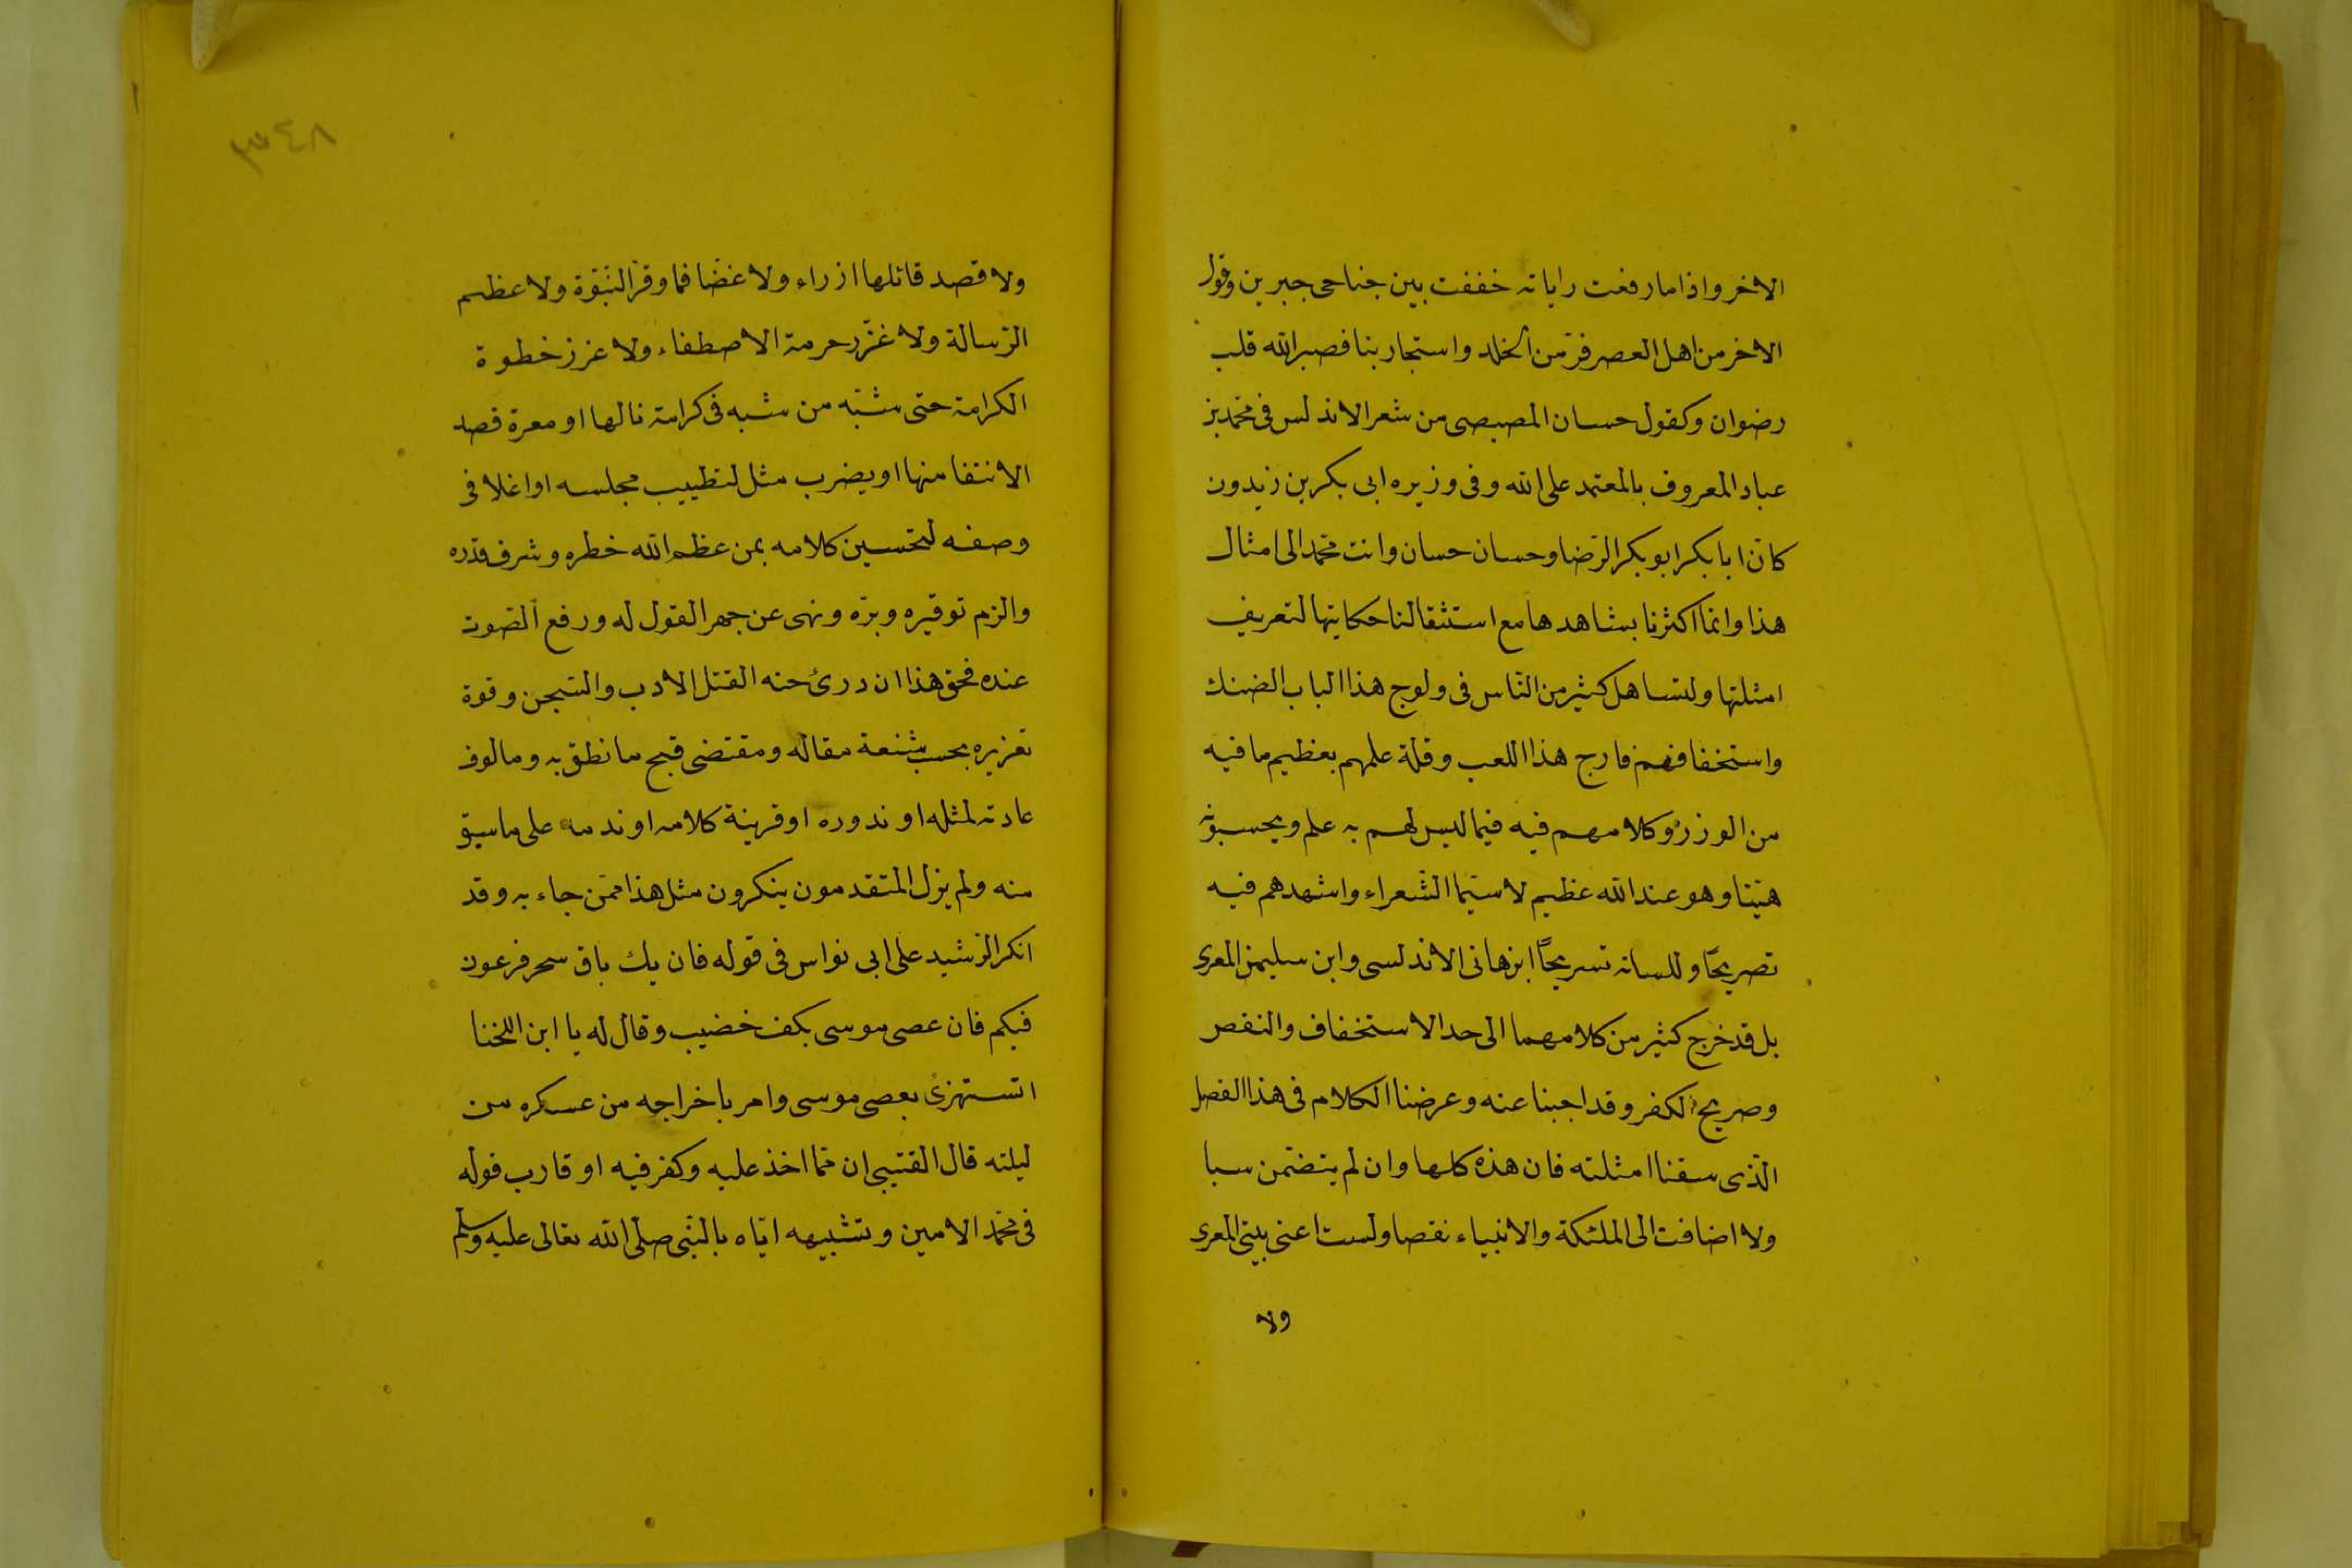 الاخر واذا ما رفعت راياته خففت بين جناحى جبرين وقول
الاخر من اهل العصر فرّ من الخلد واستجار بنا فصبر الله قلب
رضوان وكقول حسان المصيصى من شعر الاندلس فى محمد بن
عباد المعروف بالمعتمد على الله وفى وزيره ابى بكر بن زيدون
كانّ ابا بكر ابو بكر الرّضا وحسان حسان وانت محمد الى امثال
هذا وانما اكثرنا بشاهدها مع استثقالنا حكايتها لتعريف
امثلتها ولتساهل كثير من النّاس فى ولوج هذا الباب الضنك
واستخفافهم فارج هذا اللعب وقلة علمهم بعظيم ما فيه
من الوزر وكلامهم فيه فيما ليس لهم به علم ويحسبونه
هيّنا وهو عند الله عظيم لا سيّما الشّعراء واشهدهم فيه
تصريحًا وللسانه تسريحًا ابن هانى الاندلسى وابن سليمن المعرى
بل قد خرج كثير من كلامهما الى حد الاستخفاف والنقص
وصريح الكفر وقد اجبنا عنه وعرضنا الكلام فى هذا الفصل
الّذى سقنا امثلته فان هذه كلها وان لم يتضمن سبا
ولا اضافت الى الملئكة والانبياء نقصا ولست اعنى بيتى المعرى
ولا
٣٤٨
ولا قصد قائلها ازراء ولا غضّا فما وقر النّبوّة ولا عظم
الرّسالة ولا غزّر حرمة الاصطفاء ولا عزز خطوة
الكرامة حتى شبّه من شبه فى كرامة نالها او معرة قصد
الانتفا منها او يضرب مثل لتطييب مجلسه او اغلا فى
وصفه لتحسين كلامه بمن عظم الله خطره وشرف قدره
والزم توقيره وبرّه ونهى عن جهر القول له ورفع الصّوت
عنده فحق هذا ان درئ حنه القتل الادب والسّجن وقوة
تعزيره بحسب شنعة مقاله ومقتضى قبح ما نطق به ومالوف
عادته لمثله او ندوره او قرينة كلامه او ندمه على ما سبق
منه ولم يزل المتقدمون ينكرون مثل هذا ممّن جاء به وقد
انكر الرّشيد على ابى نواس فى قوله فان يك باق سحر فرعون
فيكم فان عصى موسى بكف خضيب وقال له يا ابن اللخنا
اتستهزئ بعصى موسى وامر باخراجه من عسكره من
ليلته قال القتيبى ان مّما اخذ عليه وكفر فيه او قارب قوله
فى محمّد الامين وتشبيهه ايّاه بالنّبى صلّى الله تعالى عليه وسلّم